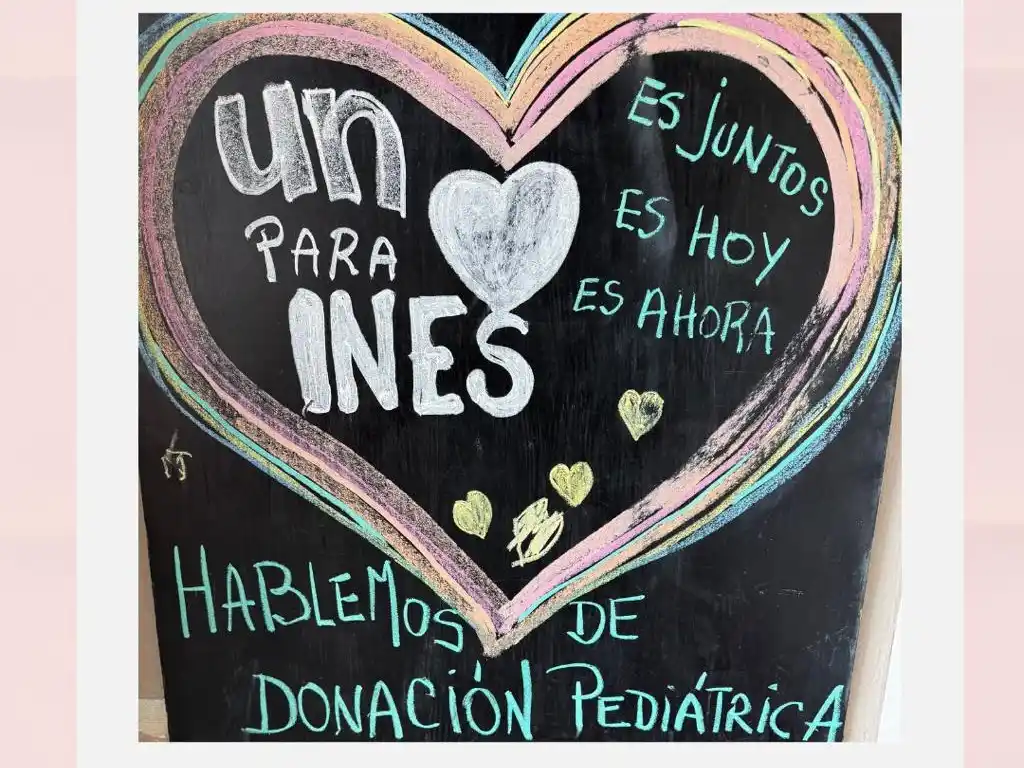 un
PARA
INES
ES JUNTOS
ES HOY
ES AHORA
HABLEMOS DE
DONACIÓN PEDIÁTRICA